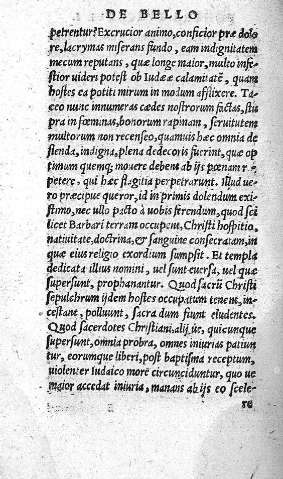 DE BELLO
petrentur? Excrucior animo, conficior præ dolo
re, lacrymas miserans fundo, eam indignitatem
mecum reputans, quæ longe maior, multo infe
stior uideri potest ob Iudææ calamitatē, quam
hostes ea potiti mirum in modum afflixere. Ta
ceo nunc innumeras cædes nostrorum factas, stu
pra in fœminas, bonorum rapinam, seruitutem
multorum non recenseo, quamuis hæc omnia de
flenda, indigna, plena dedecoris fuerint, quæ op
timum quemq; mouere debent ab ijs pœnam re
petere, qui hæc flagitia perpetrarunt. Illud ue
ro præcipue queror, id in primis dolendum exi
stimo, nec ullo pacto à uobis ferendum, quod sci
licet Barbari terram occupent, Christi hospitio,
natiuitate, doctrina, & sanguine consecratam, in
quæ eius religio exordium sumpsit. Et templa
dedicata illius nomini, uel sunt euersa, uel quæ
supersunt, prophanantur. Quod sacrū Christi
sepulchrum ijdem hostes occupatum tenent, in-
cestant, polluunt, sacra dum fiunt eludentes.
Quod sacerdotes Christiani, alij us, quicunque
supersunt, omnia probra, omnes iniurias patiun
tur, eorumque liberi, post baptisma receptum,
uiolenter Iudaico more circunciduntur, quo ue
maior accedat iniuria, manans ab ijs eo scele-
se